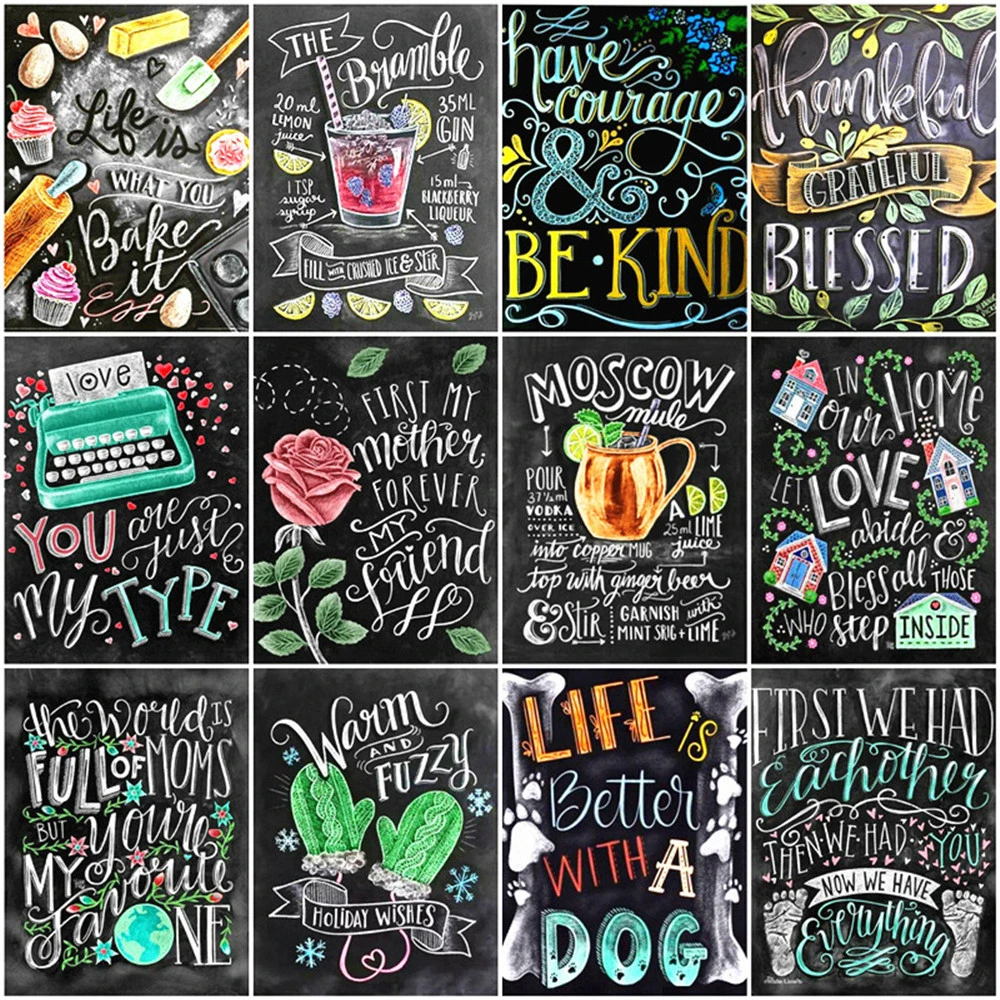 Life is
WHAT YOU
Bake
it
THE
Bramble
20 ml
LEMON
juice
35ML
GIN
1 TSP
sugar
syrup
15 ml
BLACKBERRY
LIQUEUR
FILL with CRUSHED ICE & STIR
have
courage
&
BE • KIND
thankful
GRATEFUL
BLESSED
love
YOU are
just
my TYPE
FIRST MY
mother,
FOREVER
MY
friend
MOSCOW
mule
POUR
37 1/2 ml
VODKA
OVER ICE
ADD
25 ml LIME
juice
into copper MUG
top with ginger beer
& STIR
GARNISH with
MINT SRIG + LIME
IN
our HOME
LET LOVE
abide &
BLESS all THOSE
WHO step INSIDE
the World IS
FULL OF MOMS
BUT you're
MY favorite
ONE
Warm
AND
FUZZY
HOLIDAY WISHES
LIFE is
Better
WITH A
DOG
FIRST WE HAD
Each other
THEN WE HAD YOU
NOW WE HAVE
Everything